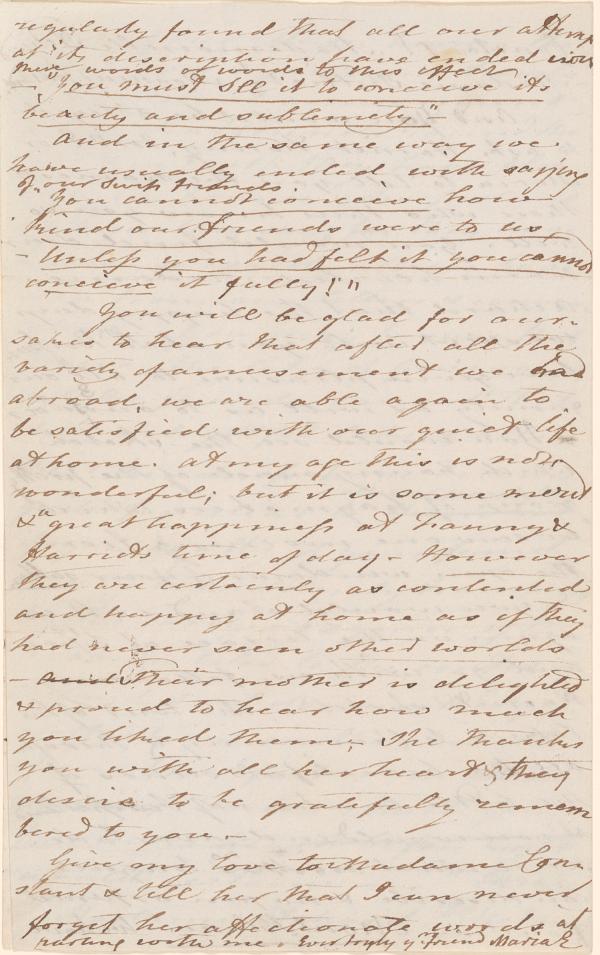 regularly found that all our attemp
at its description have ended in our
mere words or words to this effect
– "You must see it to conceive its
beauty and sublimity" –
and in the same way we
have usually ended with saying
of our Swiss friends
"You cannot conceive how
kind our friends were to us
– Unless you had felt it you cannot
conceive it fully!"
You will be glad for our
sakes to hear that after all the
variety of amusement we had
abroad, we are able again to
be satisfied with our quiet life
at home. at my age this is not
wonderful; but it is some merit
& a great happiness at Fanny &
Harriets time of day – However
they are certainly as contented
and happy at home as if they
had never seen other worlds
– and their mother is delighted
& proud to hear how much
you liked them – She thanks
you with all her heart & they
desire to be gratefully remem
bered to you –
Give my love to Madame Con
stant & tell her that I can never
forget her affectionate words at
parting with me. Ever truly yr friend Maria E